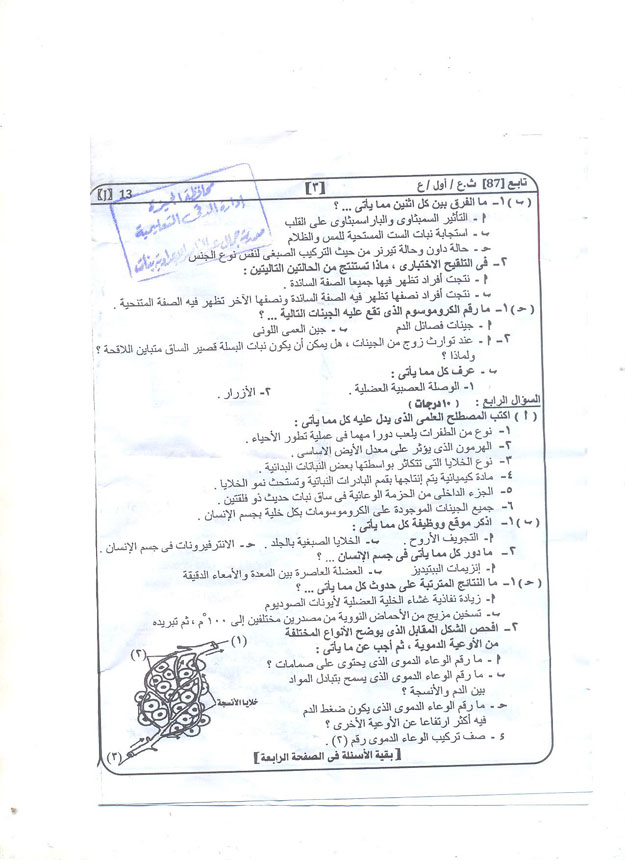 تابع [87] ث.ع / أول / ع
[٣]
[أ] 13
محافظة الجيزة
إدارة الدقى التعليمية
(ب) ١- ما الفرق بين كل اثنين مما يأتى ... ؟
أ - التأثير السمبثاوى والباراسمبثاوى على القلب
ب - استجابة نبات الست المستحية للمس والظلام
حـ - حالة داون وحالة تيرنر من حيث التركيب الصبغى لنفس نوع الجنس
٢- فى التلقيح الاختبارى ، ماذا تستنتج من الحالتين التاليتين :
أ - نتجت أفراد تظهر فيها جميعا الصفة السائدة .
ب - نتجت أفراد نصفها تظهر فيه الصفة السائدة ونصفها الآخر تظهر فيه الصفة المتنحية .
(حـ) ١- ما رقم الكروموسوم الذى تقع عليه الجينات التالية ... ؟
أ - جينات فصائل الدم
ب - جين العمى اللونى
٢- أ - عند توارث زوج من الجينات ، هل يمكن أن يكون نبات البسلة قصير الساق متباين اللاقحة ؟
ولماذا ؟
ب - عرف كل مما يأتى :
١- الوصلة العصبية العضلية .
٢- الأزرار .
السؤال الرابع : (١٠ درجات)
(أ) اكتب المصطلح العلمى الذى يدل عليه كل مما يأتى :
١- نوع من الطفرات يلعب دورا مهما فى عملية تطور الأحياء .
٢- الهرمون الذى يؤثر على معدل الأيض الاساسى .
٣- نوع الخلايا التى تتكاثر بواسطتها بعض النباتات البدائية .
٤- مادة كيميائية يتم إنتاجها بقمم البادرات النباتية وتستحث نمو الخلايا .
٥- الجزء الداخلى من الحزمة الوعائية فى ساق نبات حديث ذو فلقتين .
٦- جميع الجينات الموجودة على الكروموسومات بكل خلية بجسم الإنسان .
(ب) ١- اذكر موقع ووظيفة كل مما يأتى :
أ - التجويف الأروح .
ب - الخلايا الصبغية بالجلد .
حـ - الانترفيرونات فى جسم الإنسان .
٢- ما دور كل مما يأتى فى جسم الإنسان ... ؟
أ - إنزيمات الببتيديز
ب - العضلة العاصرة بين المعدة والأمعاء الدقيقة
(حـ) ١- ما النتائج المترتبة على حدوث كل مما يأتى ... ؟
أ - زيادة نفاذية غشاء الخلية العضلية لأيونات الصوديوم
ب - تسخين مزيج من الأحماض النووية من مصدرين مختلفين إلى ١٠٠°م ، ثم تبريده
٢- افحص الشكل المقابل الذى يوضح الأنواع المختلفة
من الأوعية الدموية ، ثم أجب عن ما يأتى :
أ - ما رقم الوعاء الدموى الذى يحتوى على صمامات ؟
ب - ما رقم الوعاء الدموى الذى يسمح بتبادل المواد
بين الدم والأنسجة ؟
حـ - ما رقم الوعاء الدموى الذى يكون ضغط الدم
فيه أكثر ارتفاعا عن الأوعية الأخرى ؟
ء - صف تركيب الوعاء الدموى رقم (٢) .
(١)
(٢)
خلايا الأنسجة
(٣)
[بقية الأسئلة فى الصفحة الرابعة]